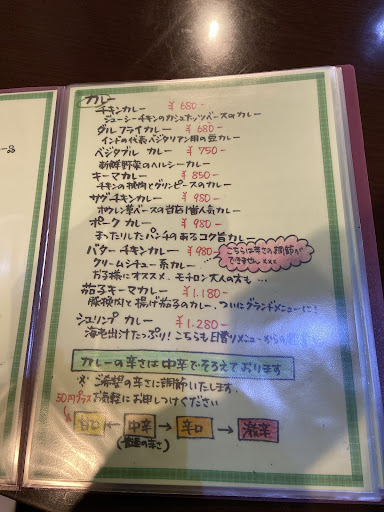 カレー
チキンカレー ¥680-
ジューシーチキンのカシュナッツベースのカレー
ダルフライカレー ¥680-
インドの代表ベジタリアン用の豆カレー
ベジタブル カレー ¥750-
新鮮野菜のヘルシーカレー
キーマカレー ¥850-
チキンの挽肉とグリンピースのカレー
サグチキンカレー ¥980-
ホウレン草ベースの当店1番人気カレー
ポーク カレー ¥980-
まったりしたパンチのあるコク旨カレー
バターチキンカレー ¥980-
こちらは辛さの調節が
できません×××
クリームシチュー系カレー
お子様にオススメ、モチロン大人の方も…
茄子キーマカレー ¥1.180-
豚挽肉と揚げ茄子のカレー、ついにグランドメニューに!
シュリンプ カレー ¥1.280-
海老出汁たっぷり!こちらも日替りメニューからの
カレーの辛さは中辛でそろえております
※ ご希望の辛さに調節いたします。
50円プラス お気軽にお申しつけください
甘口 ← 中辛 → 辛口 → 激辛
(普通の辛さ)